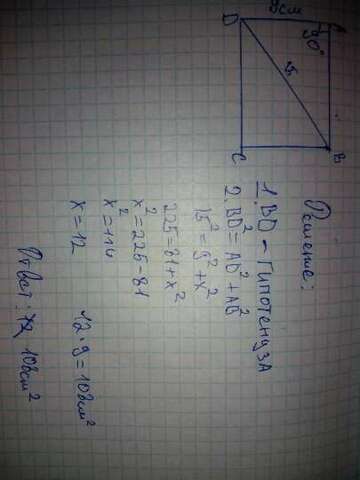 9см
D
90°
15
C
B
Решение:
1. BD - гипотенуза
2. BD² = AD² + AB²
15² = 9² + x²
225 = 81 + x²
x² = 225 - 81
x² = 144
x = 12
12 · 9 = 108см²
Ответ: 108см²